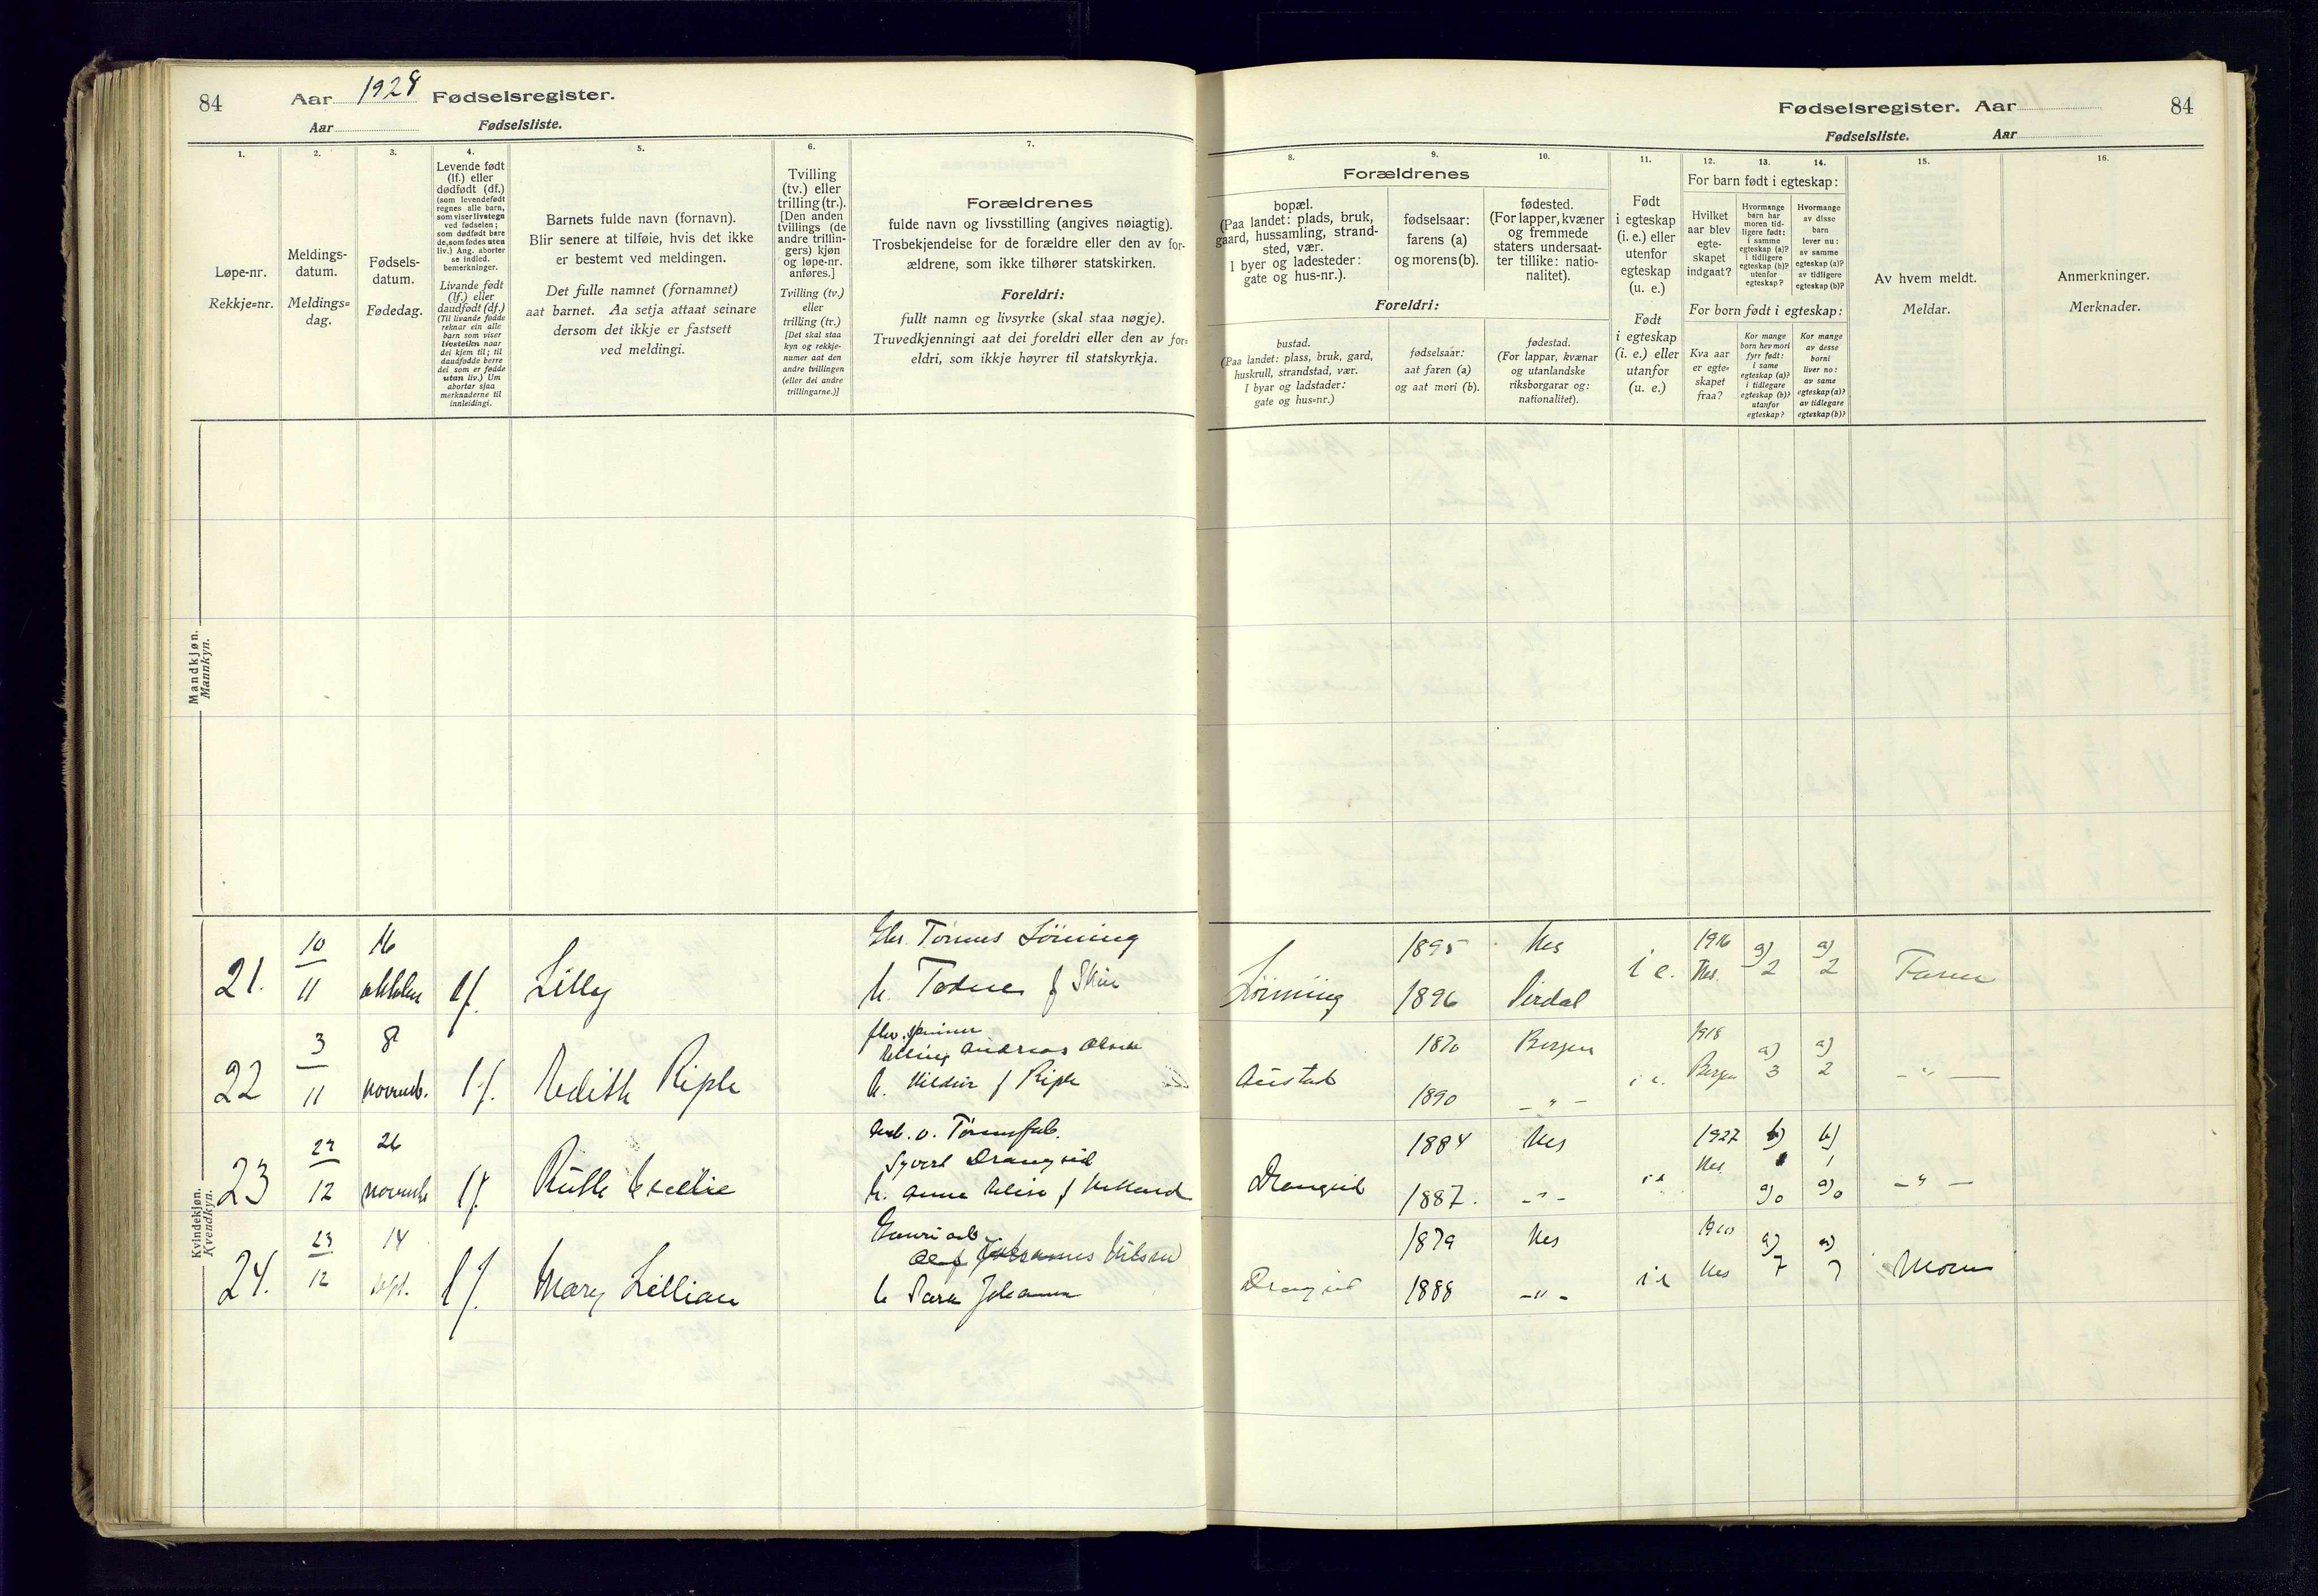 84
Aar 1928 Fødselsregister.
Aar Fødselsliste.
Fødselsregister. Aar
84
Fødselsliste. Aar
1.
Løpe-nr.
Rekkje=nr.
2.
Meldings-
datum.
Meldings=
dag.
3.
Fødsels-
datum.
Fødedag.
4.
Levende født
(lf.) eller
dødfødt (df.)
(som levendefødt
regnes alle barn,
som viser livstegn
ved fødselen;
som dødfødt bare
de, som fødes uten
liv.) Ang. aborter
se indled.
bemerkninger.
Livande født
(lf.) eller
daudfødt (df.)
(Til livande fødde
reknar ein alle
barn som viser
livsteikn naar
dei kjem til; til
daudfødde berre
dei som er fødde
utan liv.) Um
abortar sjaa
merknaderne til
innleidingi.
5.
Barnets fulde navn (fornavn).
Blir senere at tilføie, hvis det ikke
er bestemt ved meldingen.
Det fulle namnet (fornamnet)
aat barnet. Aa setja attaat seinare
dersom det ikkje er fastsett
ved meldingi.
6.
Tvilling
(tv.) eller
trilling (tr.).
[Den anden
tvillings (de
andre trillin-
gers) kjøn
og løpe-nr.
anføres.]
Tvilling (tv.)
eller
trilling (tr.)
[Det skal staa
kyn og rekkje-
numer aat den
andre tvillingen
(eller dei andre
trillingarne.)]
7.
Forældrenes
fulde navn og livsstilling (angives nøiagtig).
Trosbekjendelse for de forældre eller den av for-
ældrene, som ikke tilhører statskirken.
Foreldri:
fullt namn og livsyrke (skal staa nøgje).
Truvedkjenningi aat dei foreldri eller den av for=
eldri, som ikkje høyrer til statskyrkja.
8.
9.
10.
Forældrenes
bopæl.
(Paa landet: plads, bruk,
gaard, hussamling, strand-
sted, vær.
I byer og ladesteder:
gate og hus-nr.).
fødselsaar:
farens (a)
og morens (b).
fødested.
(For lapper, kvæner
og fremmede
staters undersaat-
ter tillike: natio-
nalitet).
Foreldri:
bustad.
(Paa landet: plass, bruk, gard,
huskrull, strandstad, vær.
I byar og ladstader:
gate og hus=nr.)
fødselsaar:
aat faren (a)
og aat mori (b).
fødestad.
(For lappar, kvænar
og utanlandske
riksborgarar og:
nationalitet).
11.
Født
i egteskap
(i. e.) eller
utenfor
egteskap
(u. e.)
Født
i egteskap
(i. e.) eller
utanfor
(u. e.)
12.
13.
14.
For barn født i egteskap:
Hvilket
aar blev
egte-
skapet
indgaat?
Hvormange
barn har
moren tid-
ligere født:
i samme
egteskap (a)?
i tidligere
egteskap (b)?
utenfor
egteskap?
Hvormange
av disse
barn
lever nu:
av samme
egteskap (a)?
av tidligere
egteskap (b)?
For born født i egteskap:
Kva aar
er egte=
skapet
fraa?
Kor mange
born hev mori
fyrr født:
i same
egteskap (a)?
i tidlegare
egteskap (b)?
utanfor
egteskap?
Kor mange
av desse
borni
liver no:
av same
egteskap (a)?
av tidlegare
egteskap (b)?
15.
Av hvem meldt.
Meldar.
16.
Anmerkninger.
Merknader.
Mandkjøn.
Mannkyn.
Kvindekjøn.
Kvendkyn.
21. 10/11 16 lf. Lilly
Tørnes Lönning
Lönning 1895 Nes i e. 1916 Nes. a) 2 a) 2 Faren
1896 Sirdal
22 3/11 8 novemb. lf. Edith Riple
Andreas Olsen
Riple
Austad 1870 Bergen i e. 1918 Bergen a) 3 a) 2 - " -
1890 - " -
23 26 lf. Ruth Cecelie
Syvert Drangeid
h. Anna Elise f
Drangeid 1884 Nes i e 1927 Nes b) b) 1 - " -
1887. - " - a) 0 a) 0
24. 23/12 14 sept. lf. Mary Lillian
Johannes Nilsen
h Sara Johanna
Drangeid 1879 Nes i e 1910 Nes a) 7 a) 7 Moren
1888 - " -